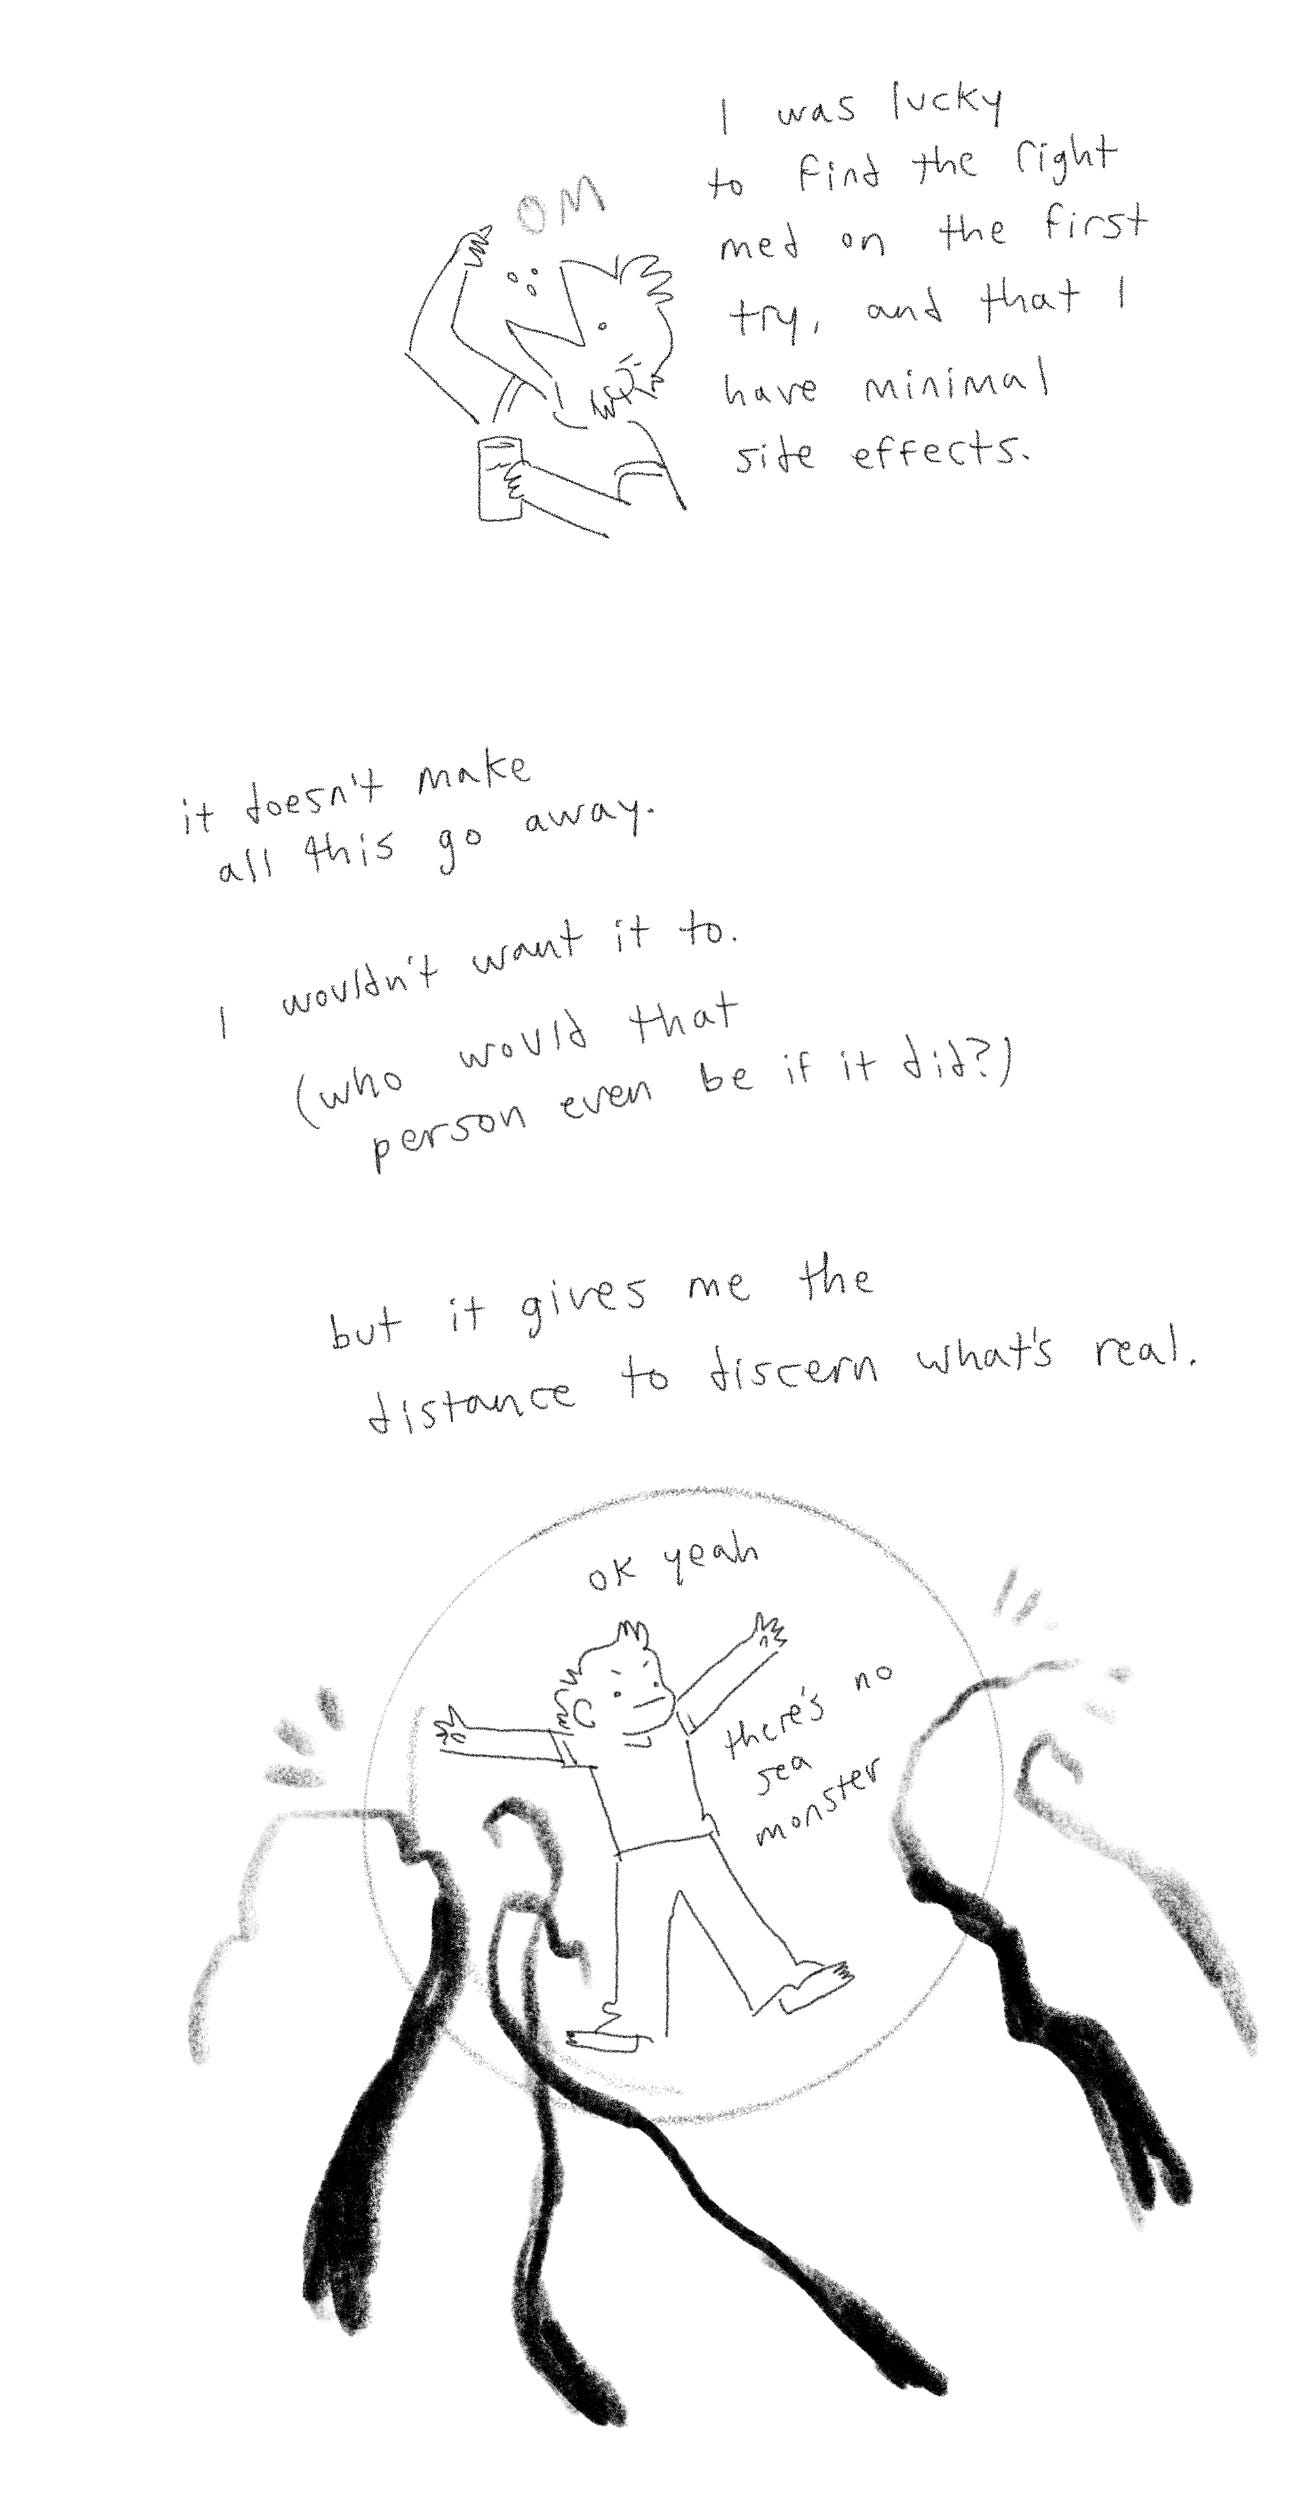 I was lucky
to find the right
OM
med on the first
try, and that I
have minimal
side effects.
it doesn't make
all this go away.
I wouldn't want it to.
(who would that
person even be if it did?)
but it gives me the
distance to discern what's real.
ok yeah
there's no
sea
monster